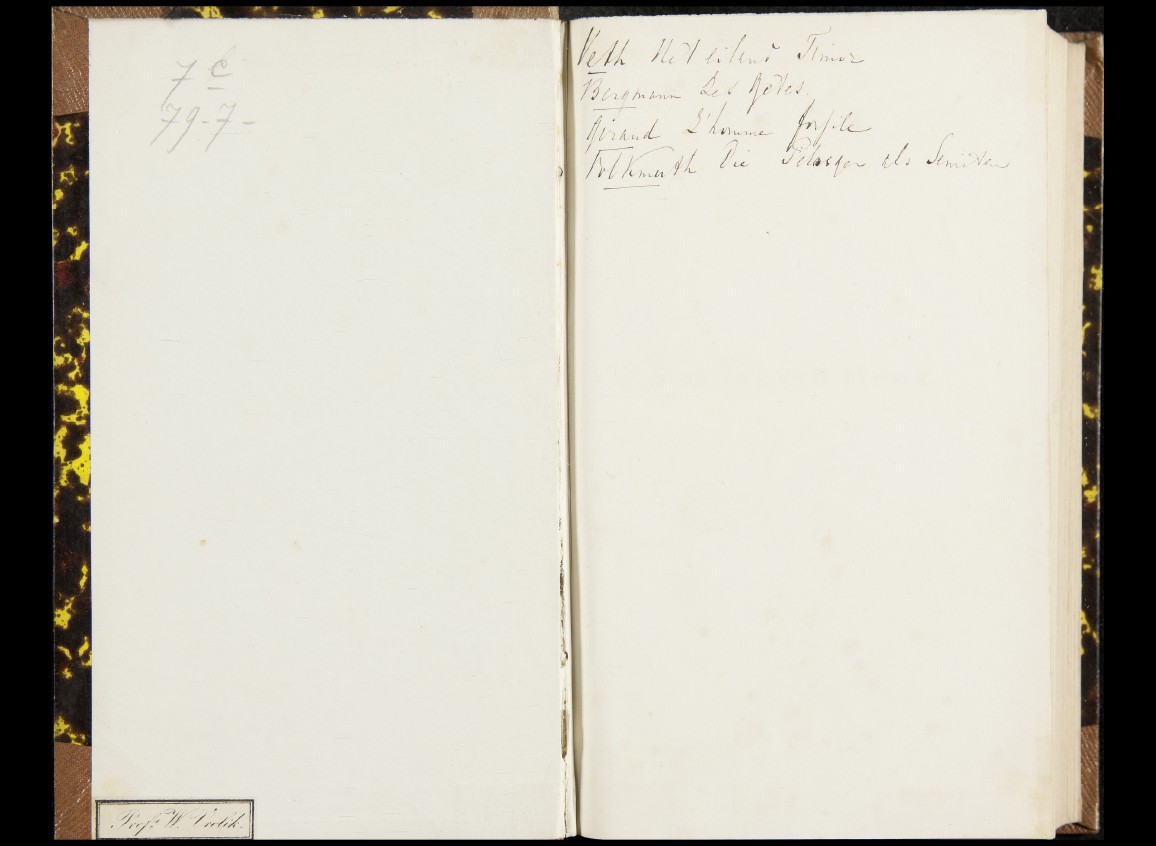 7 c
79-7-
Veth Het eiland Timor
Bergmann Les Gètes.
Girard L'homme fossile
Volkmuth Die Pelasger als Semiten
Prof. W. Vrolik.